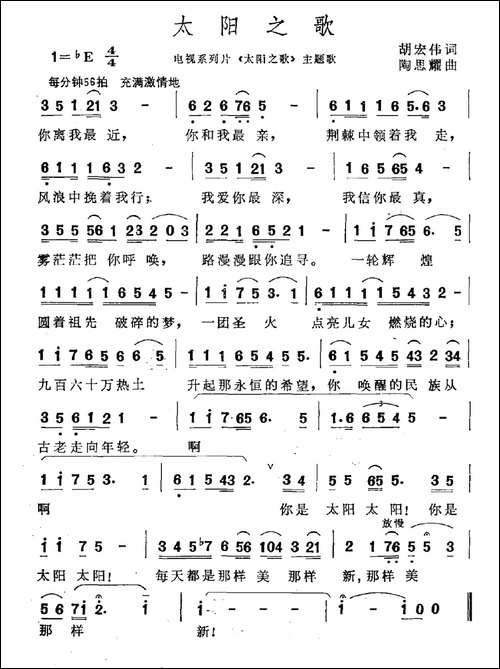 太阳之歌
1=♭E 4/4
电视系列片《太阳之歌》主题歌
胡宏伟词
陶思耀曲
每分钟56拍 充满激情地
3 5 1 21 3 - | 6 2 6 76 5 - | 6 1 1 1 1 6 5. 6 3
你离我最近, 你和我最亲, 荆棘中领着我走,
6 1 1 1 1 6 3 2 - | 3 5 1 21 3 - | 1 6 5 654 -
风浪中挽着我行; 我爱你最深, 我信你最真,
3 5 5 56 1 23 2 0 3 | 2 2 1 6 5 2 - | 1 i 7 65 6.
雾茫茫把你呼唤, 路漫漫跟你追寻。 一轮辉煌
1 1 1 1 1 6 5 4 5 - | 1 i 7 5 3. | 0 1 1 1 1 5 4 3 2 -
圆着祖先破碎的梦, 一团圣火 点亮儿女燃烧的心;
1 i 7 6 5 6 6 5. | 1 6 1 6 5 4 2 5 5. | 3 4 5 4 5 6 43 2 34
九百六十万热土 升起那永恒的希望, 你唤醒的民族从
3 5 6 1 2 1 - | 1 i 7 65 6. 5 | 1. 6 6 5 4 5 -
古老走向年轻。 啊
1 i 7 5 3. 1 | 6 1 5 43 2. 3 4 | 5 5 5 5. 3 5
啊 你是 太阳 太阳! 你是
放慢
i i 7 5 - | 3 4 5 ♭7 6 56 104 3 21 | 2 1 76 5 5 0 3
太阳 太阳! 每天都是那样美 那样 新, 那样美
5 6 7 i 2. i | i - - - | - - i 0 0
那样 新!